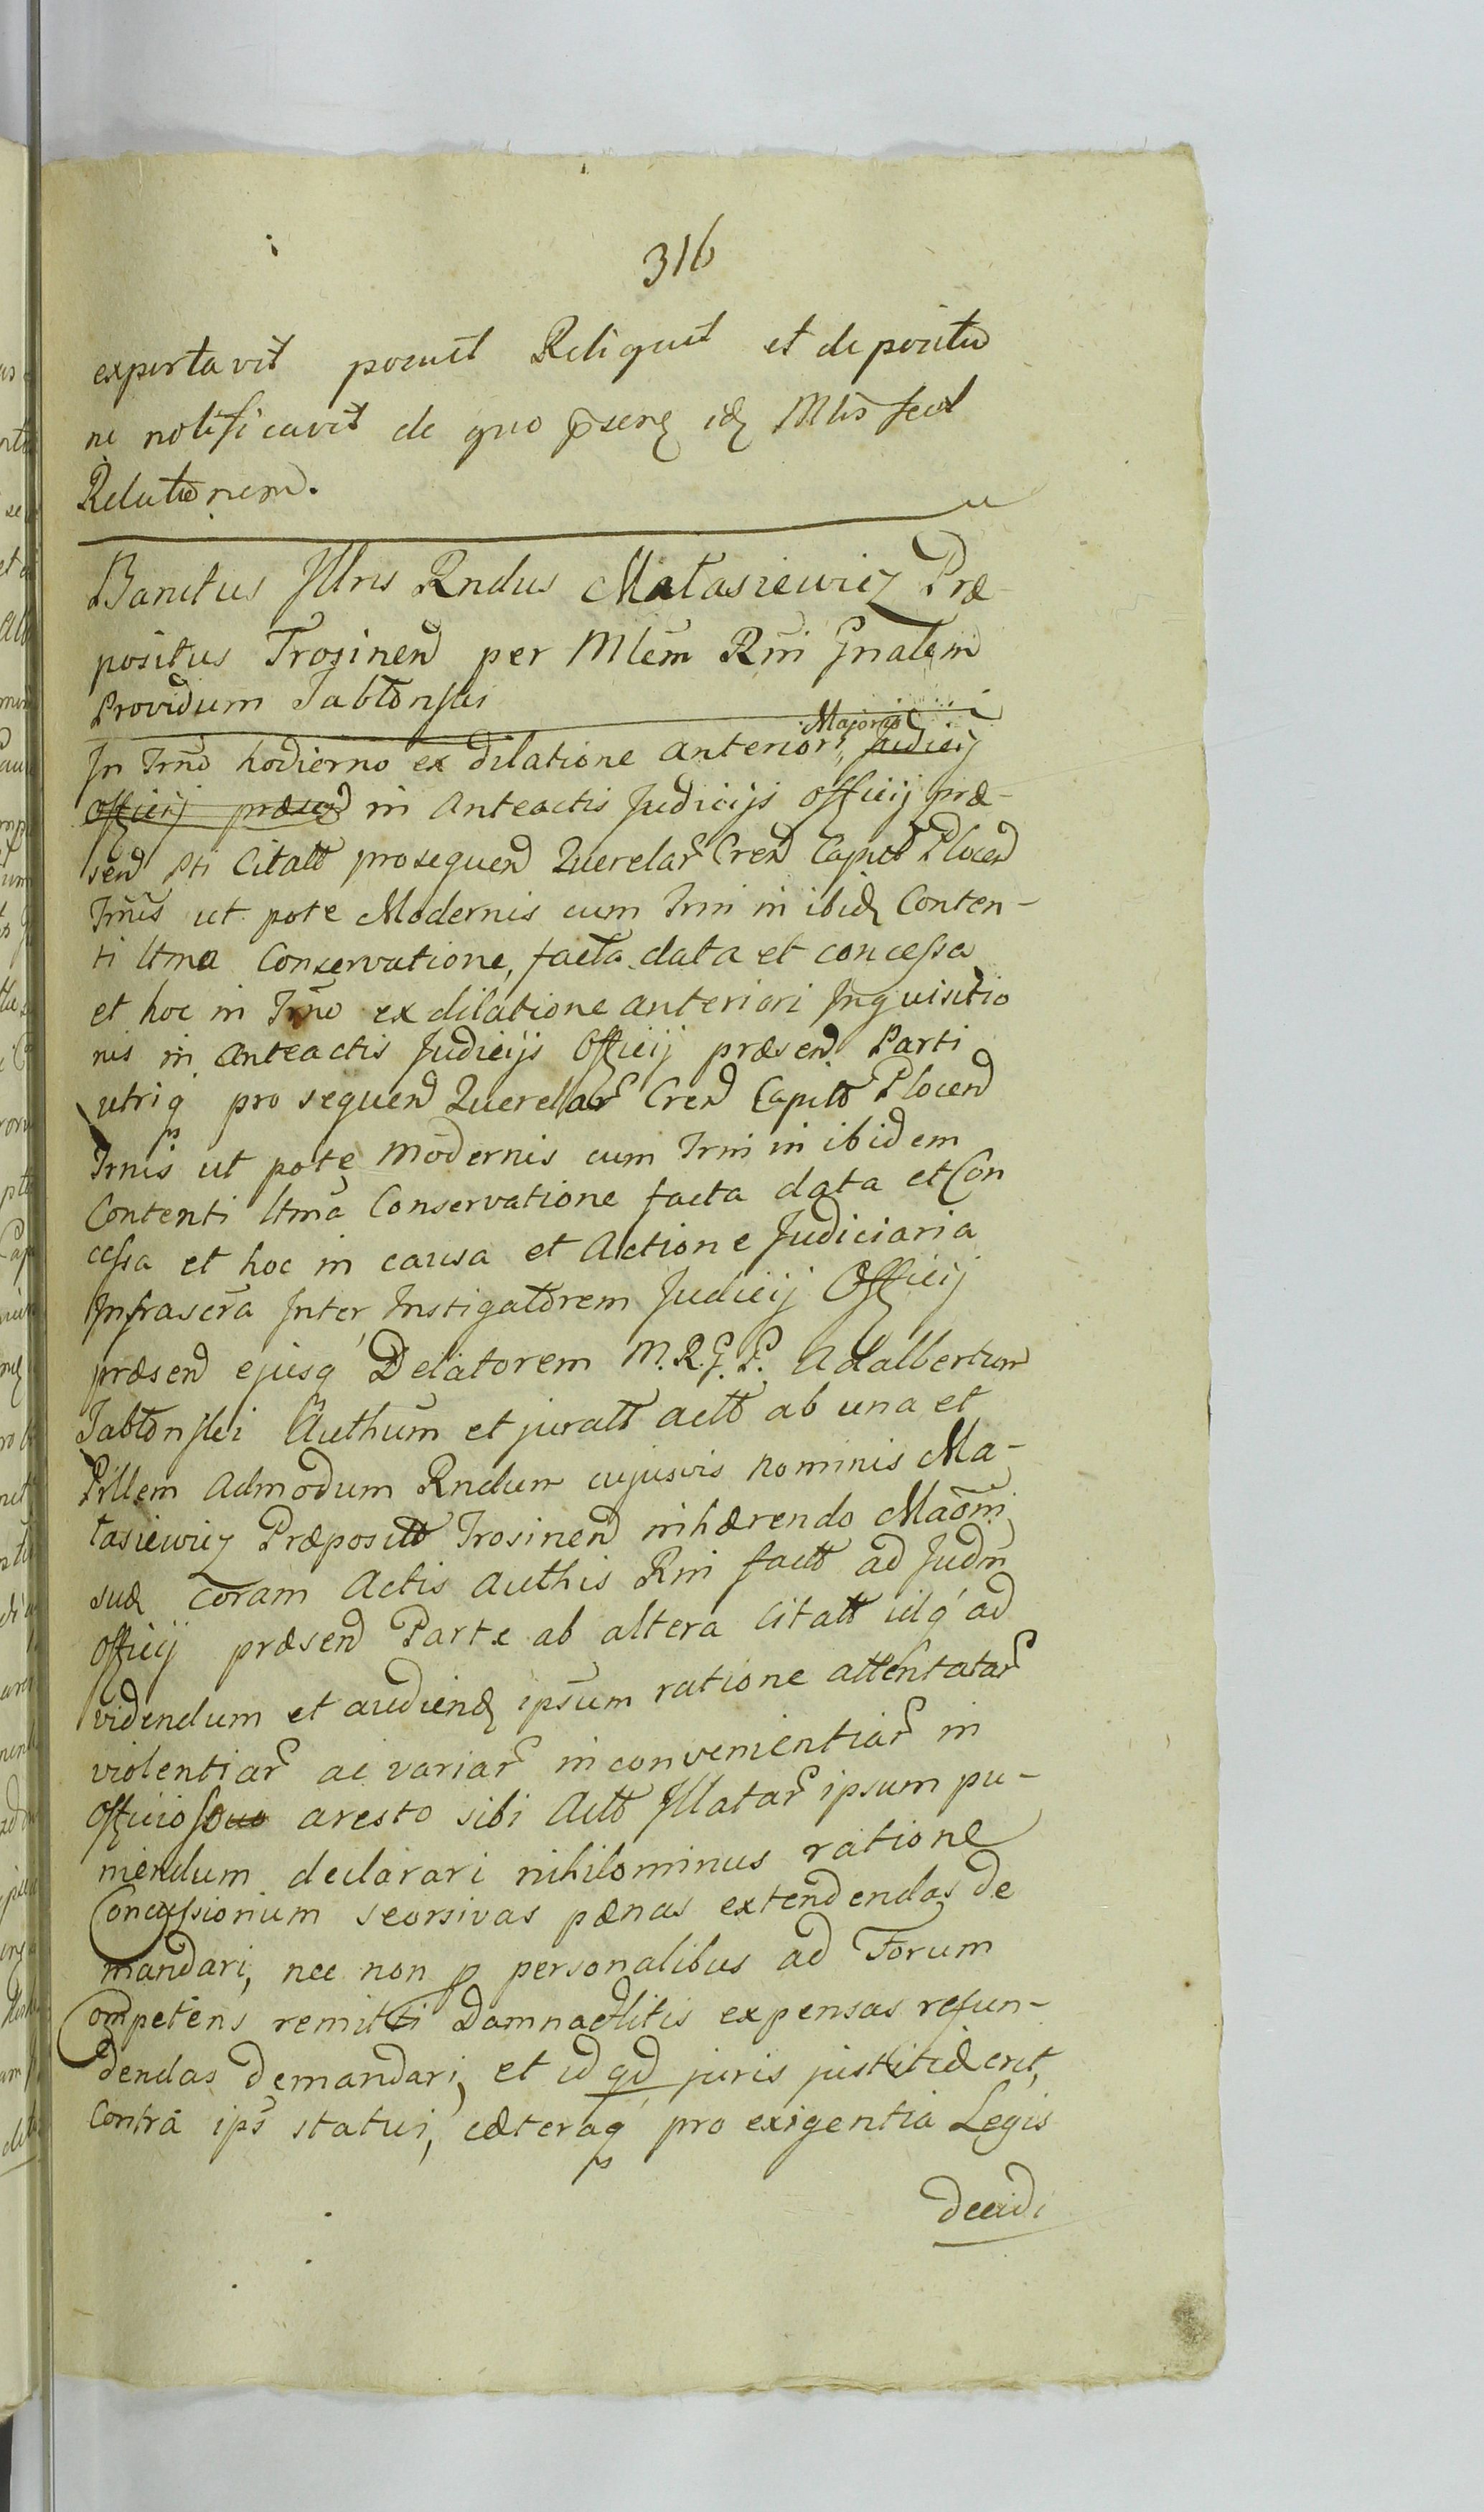 316
exportavit posuit Reliquit et depositio
ne notificavit de quo p̄senꝫ idꝫ Mlis fecit
Relationem.
Banitus Jllris Rndus Matasiewicz Præ-
positus Trosinen̄ per Mlem̄ Rm̄i Gnalem
Providum Jabłonski
Majoris
In Trn̄o hodierno ex dilatione anteriori, Judicij
Officij præsen̄ in Anteactis Judicijs Officij præ-
sen̄ Pti Citatt prosequen̄ Querelar̄ Cren̄ Capitt Plocen̄
Trn̄is ut pote Modernis cum Trni in ibidꝫ Conten-
ti ltma Conservatione, facta data et concessa
et hoc in Trn̄o ex dilatione anteriori Inquisitio
nis in anteactis Judicijs Officij præsen̄ Parti
utriq prosequen̄ Querelar̄ Cren̄ Capitt Plocen̄
Trnis ut pote modernis cum Trni in ibidem
Contenti ltmā Conservatione facta data et Con
cessa et hoc in causa et Actione Judiciaria
Infrascra Inter Instigatorem Judicij Officij
præsen̄ ejusq Delatorem M.R.G.P. Adalbertum
Jabłonski Authum̄ et juratt actt ab una et
Pillem Admodum Rndum cujusvis nominis Ma-
tasiewicz Præpositt Trosinen̄ inhærendo Maōni
suæ coram Actis Authis Rni factt ad Judm̄
Officij præsen̄ Parte ab altera Citatt idq ad
videndum et audiendꝫ ipsum ratione attentatar̄
violentiar̄ ac variar̄ inconvenientiar̄ in
Officioso aresto sibi Actt Jllatar̄ ipsum pu-
niendum declarari nihilominus ratione
Concussionum seorsivas pænas extendendas de
mandari, nec non p personalibus ad Forum
Competens remitti Damna et litis expensas refun-
dendas demandari, et id qd juris justitiæ erit,
Contra ips̄ statui, cæteraq pro exigentia Legis
decidi